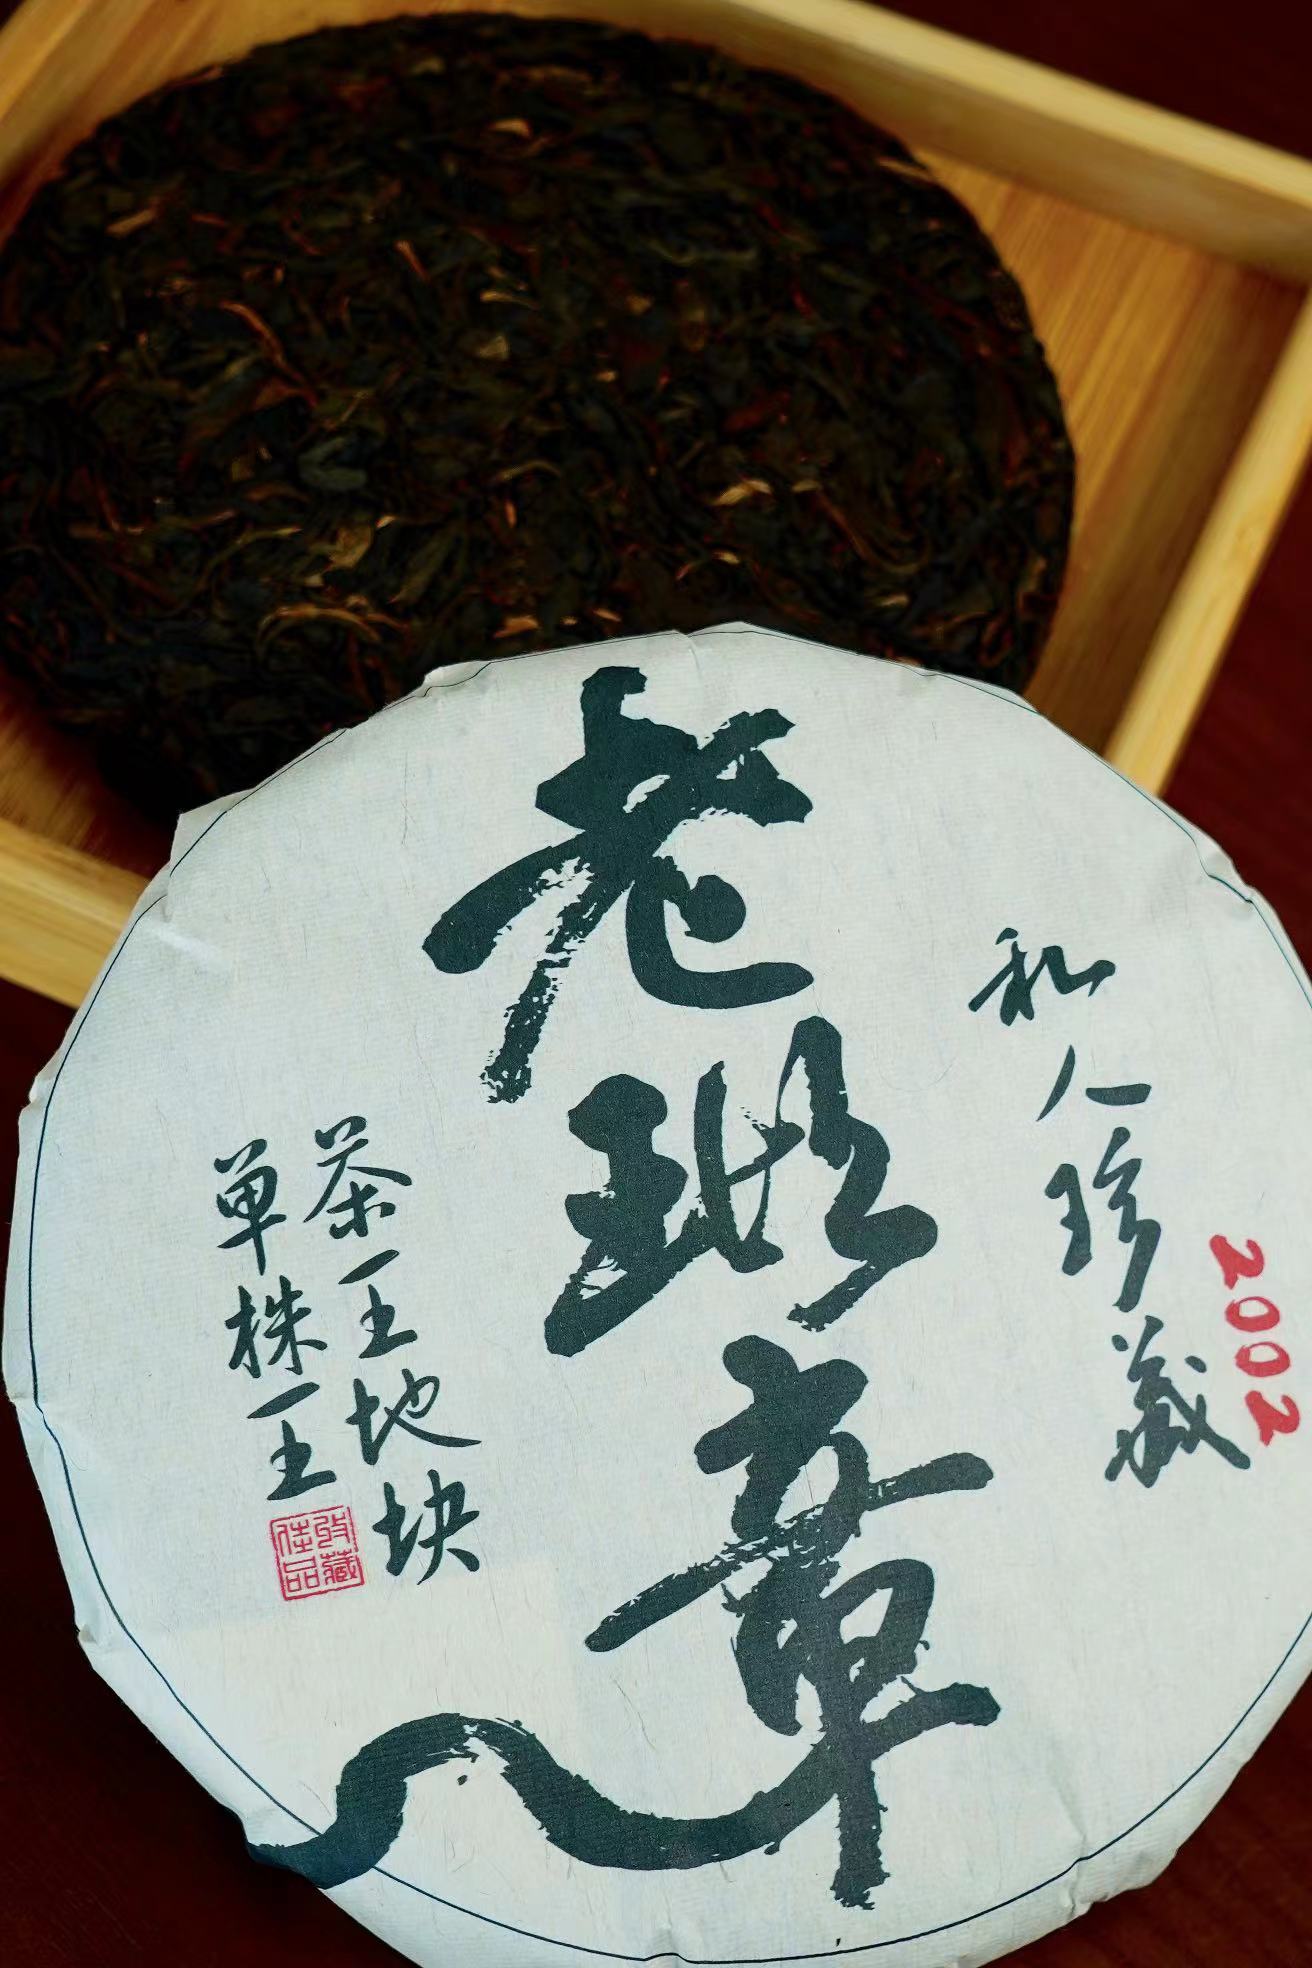 老班章
私人珍藏
2002
茶王地块
单株王
收藏佳品